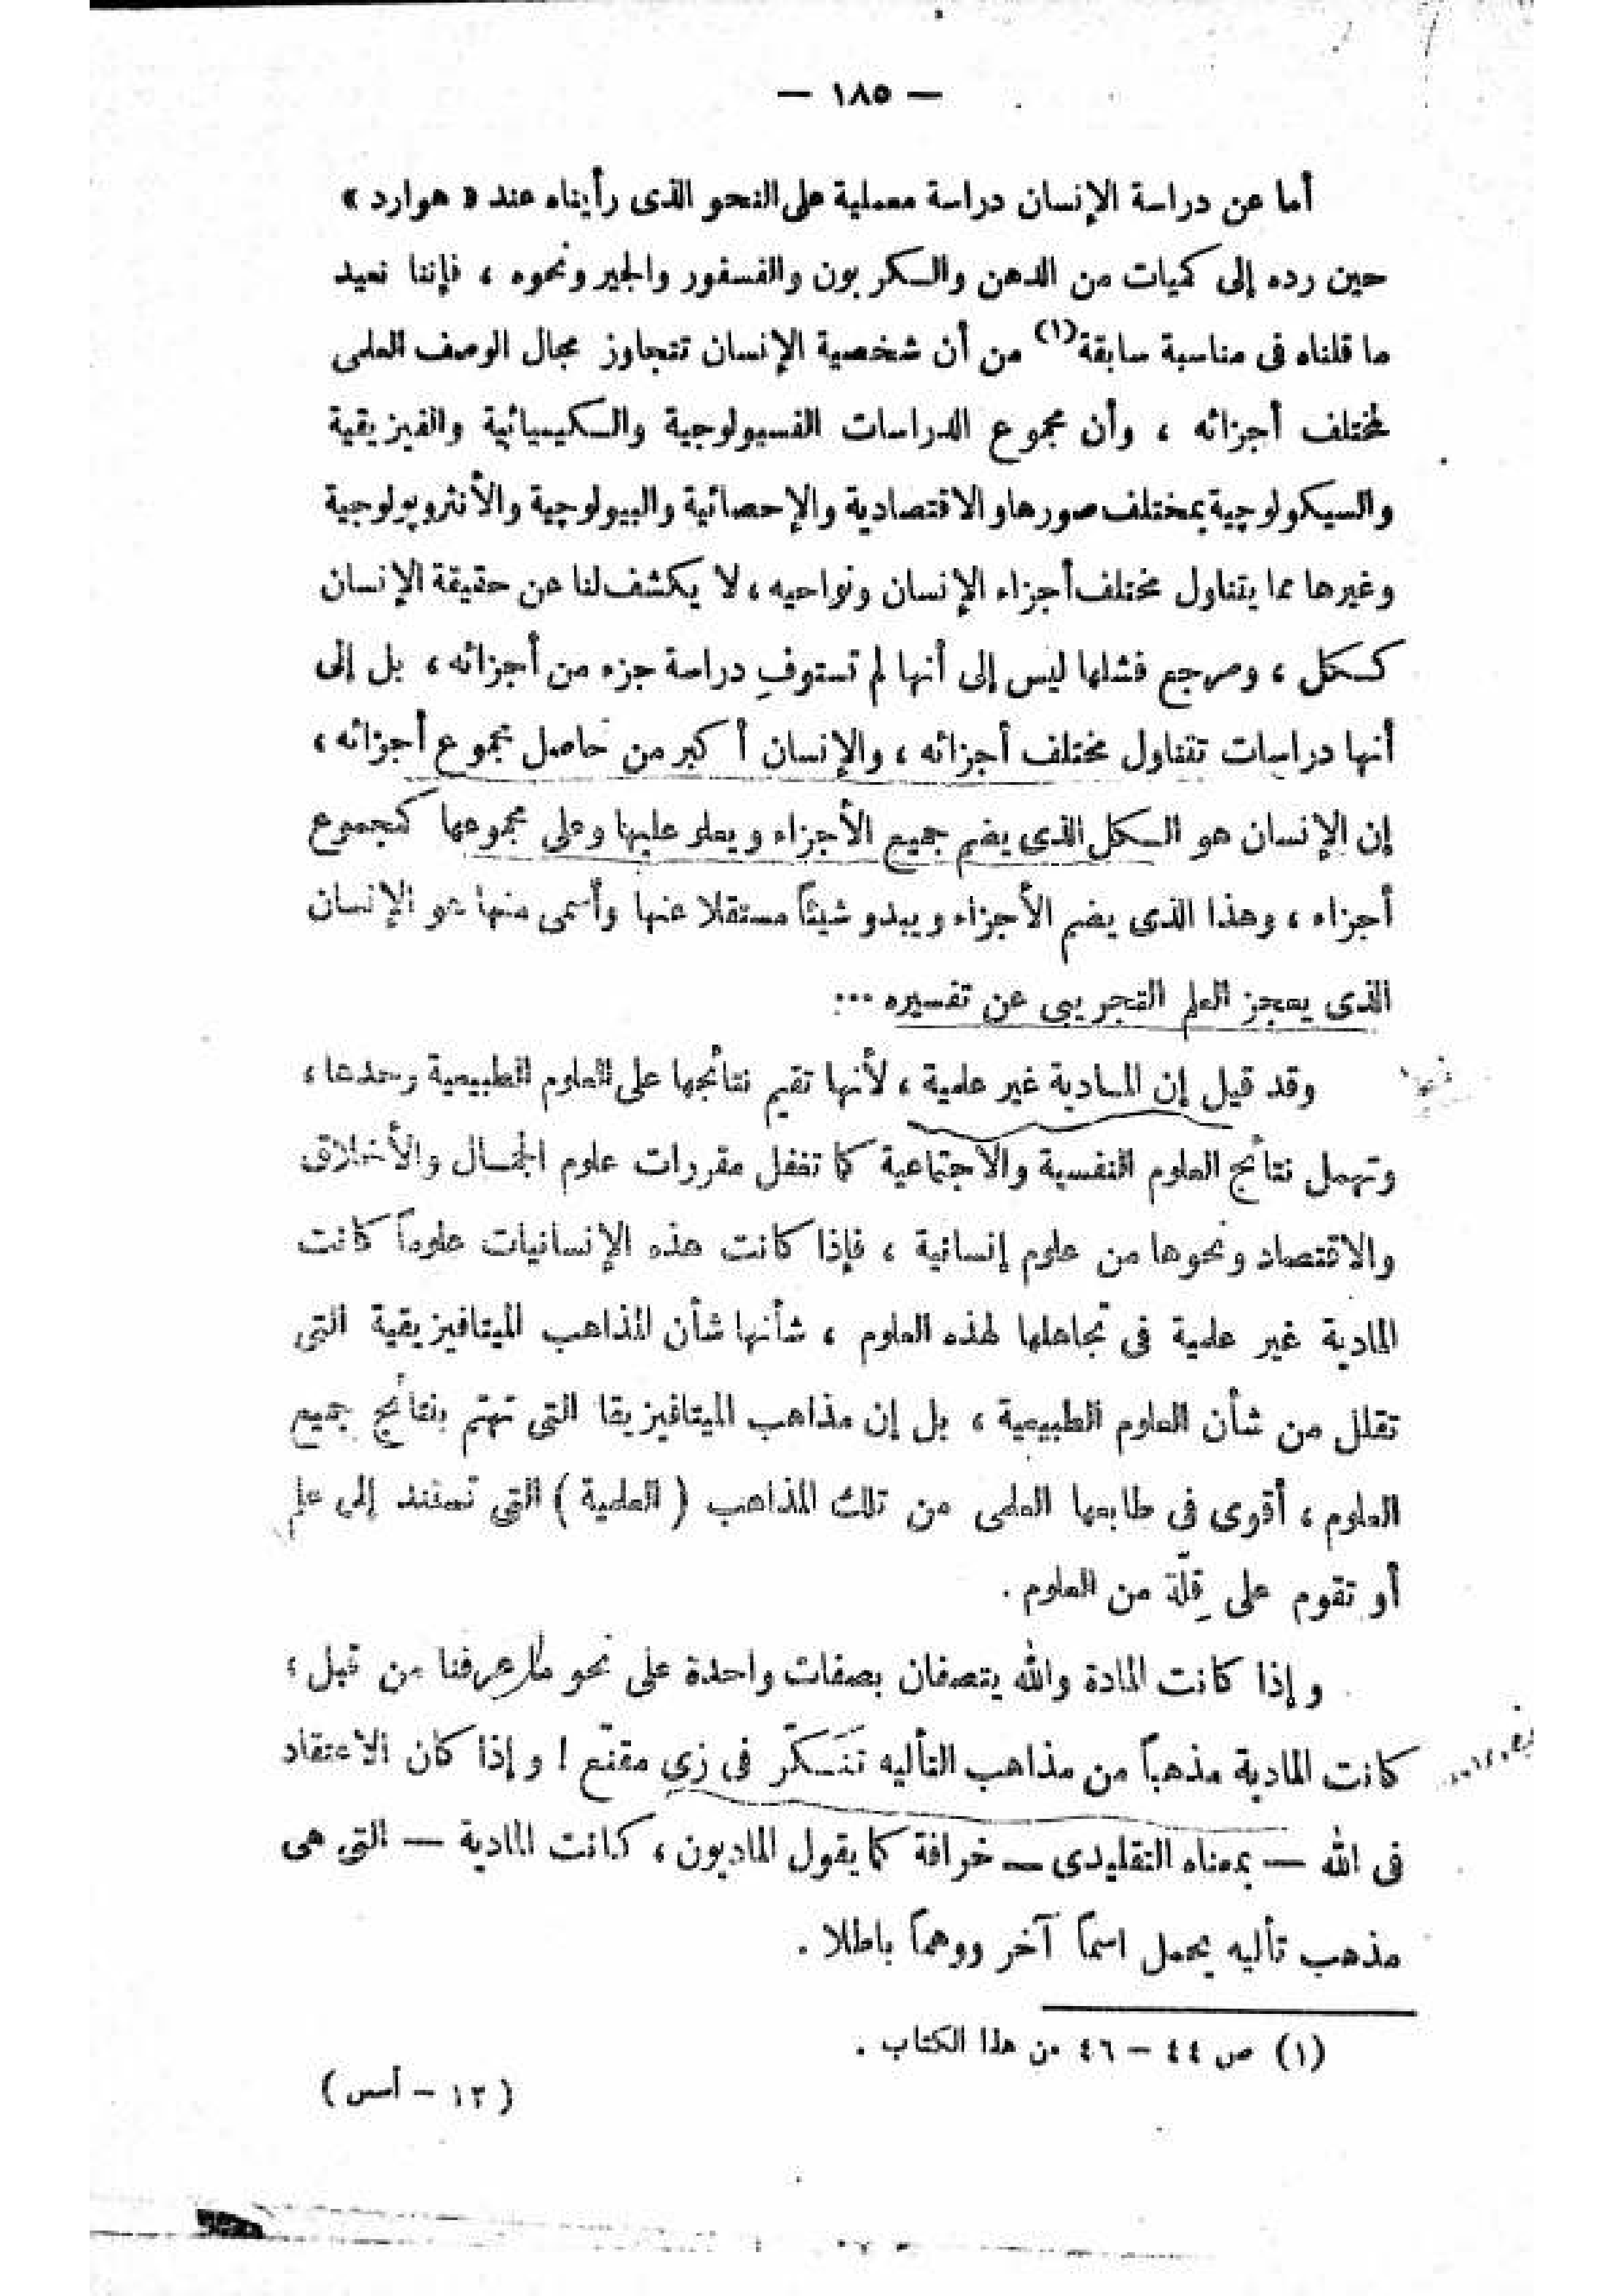 — ١٨٥ —
أما عن دراسة الإنسان دراسة معملية على النحو الذى رأيناه عند « هوارد »
حين رده إلى كميات من الدهن والكربون والفسفور والجير ونحوه ، فإننا نعيد
ما قلناه فى مناسبة سابقة(١) من أن شخصية الإنسان تتجاوز مجال الوصف العلمى
لمختلف أجزائه ، وأن مجموع الدراسات الفسيولوجية والكيميائية والفيزيقية
والسيكولوجية بمختلف صورها والاقتصادية والإحصائية والبيولوجية والأنثروبولوجية
وغيرها مما يتناول مختلف أجزاء الإنسان ونواحيه ، لا يكشف لنا عن حقيقة الإنسان
ككل ، ومرجع فشلها ليس إلى أنها لم تستوفِ دراسة جزء من أجزائه ، بل إلى
أنها دراسات تتناول مختلف أجزائه ، والإنسان أكبر من حاصل مجموع أجزائه ،
إن الإنسان هو الكل الذى يضم جميع الأجزاء ويعلو عليها وعلى مجموعها كمجموع
أجزاء ، وهذا الذى يضم الأجزاء ويبدو شيئاً مستقلا عنها وأسمى منها هو الإنسان
الذى يعجز العلم التجريبى عن تفسيره ...
وقد قيل إن المادية غير علمية ، لأنها تقيم نتائجها على العلوم الطبيعية وحدها ،
وتهمل نتائج العلوم النفسية والاجتماعية كما تغفل مقررات علوم الجمال والأخلاق
والاقتصاد ونحوها من علوم إنسانية ، فإذا كانت هذه الإنسانيات علوماً كانت
المادية غير علمية فى تجاهلها لهذه العلوم ، شأنها شأن المذاهب الميتافيزيقية التى
تقلل من شأن العلوم الطبيعية ، بل إن مذاهب الميتافيزيقا التى تهتم بنتائج جميع
العلوم ، أقوى فى طابعها العلمى من تلك المذاهب ( العلمية ) التى تستند إلى علم
أو تقوم على قِلّة من العلوم .
وإذا كانت المادة والله يتصفان بصفات واحدة على نحو ما عرفنا من قبل ؛
كانت المادية مذهباً من مذاهب التأليه تَنَكّر فى زى مقنّع ! وإذا كان الاعتقاد
فى الله — بمعناه التقليدى — خرافة كما يقول الماديون ، كانت المادية — التى هى
مذهب تأليه يحمل اسماً آخر ووهماً باطلا .
(١) ص ٤٤ – ٤٦ من هذا الكتاب .
( ١٣ – أسس )